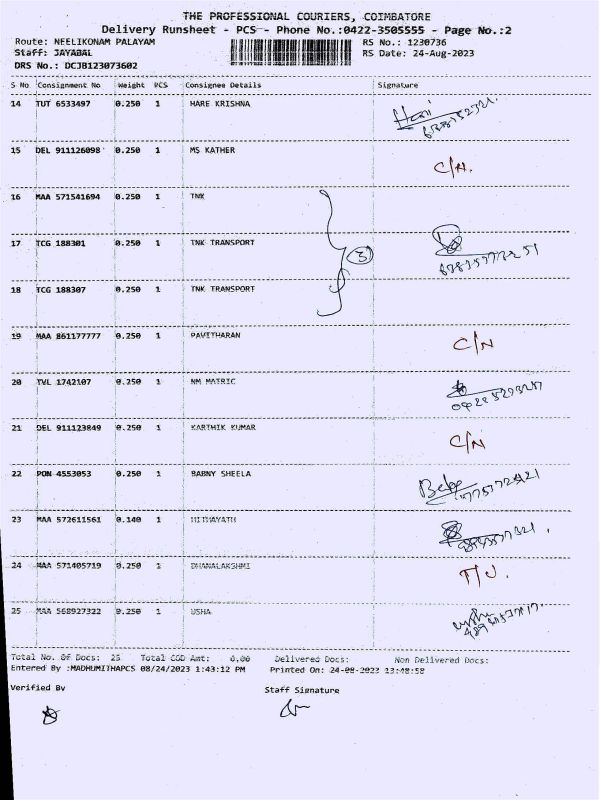 THE PROFESSIONAL COURIERS, COIMBATORE
Delivery Runsheet - PCS - Phone No.:0422-3505555 - Page No.:2
Route: NEELIKONAM PALAYAM RS No.: 1230736
Staff: JAYABAL RS Date: 24-Aug-2023
DRS No.: DCJB123073602
S No Consignment No Weight PCS Consignee Details Signature
14 TUT 6533497 0.250 1 HARE KRISHNA Hari
15 DEL 911126098 0.250 1 MS KATHER C/N.
16 MAA 571541694 0.250 1 TNK
17 TCG 188301 0.250 1 TNK TRANSPORT 3
18 TCG 188307 0.250 1 TNK TRANSPORT
19 MAA 861177777 0.250 1 PAVITHARAN C/N
20 TVL 1742107 0.250 1 NM MATRIC
21 DEL 911123849 0.250 1 KARTHIK KUMAR C/N
22 PON 4553053 0.250 1 BABNY SHEELA
23 MAA 572611561 0.140 1 HITHAYATH
24 MAA 571405719 0.250 1 DHANALAKSHMI
25 MAA 568927322 0.250 1 USHA
Total No. Of Docs: 25 Total COD Amt: 0.00 Delivered Docs: Non Delivered Docs:
Entered By :MADHUMITHAPCS 08/24/2023 1:43:12 PM Printed On: 24-08-2023 13:48:58
Verified By Staff Signature